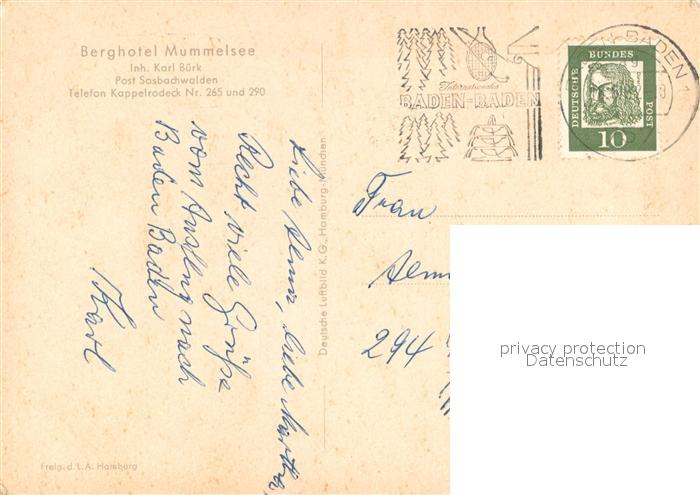 Berghotel Mummelsee
Inh. Karl Bürk
Post Sasbachwalden
Telefon Kappelrodeck Nr. 265 und 290
Liebe Martha,
Recht viele Grüße
vom Ausflug nach
Baden Baden
Karl
Freig. d. L. A. Hamburg
Deutsche Luftbild K.G., Hamburg-München
Internationales
BADEN-BADEN
BADEN-BADEN
DEUTSCHE BUNDESPOST
10
Frau
294
privacy protection
Datenschutz